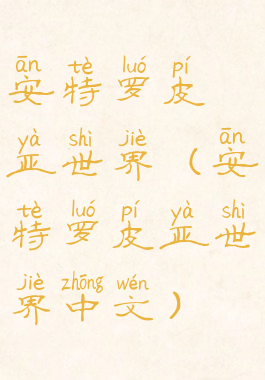 ān tè luó pí
安特罗皮
yà shì jiè ān
亚世界（安
tè luó pí yà shì
特罗皮亚世
jiè zhōng wén
界中文）